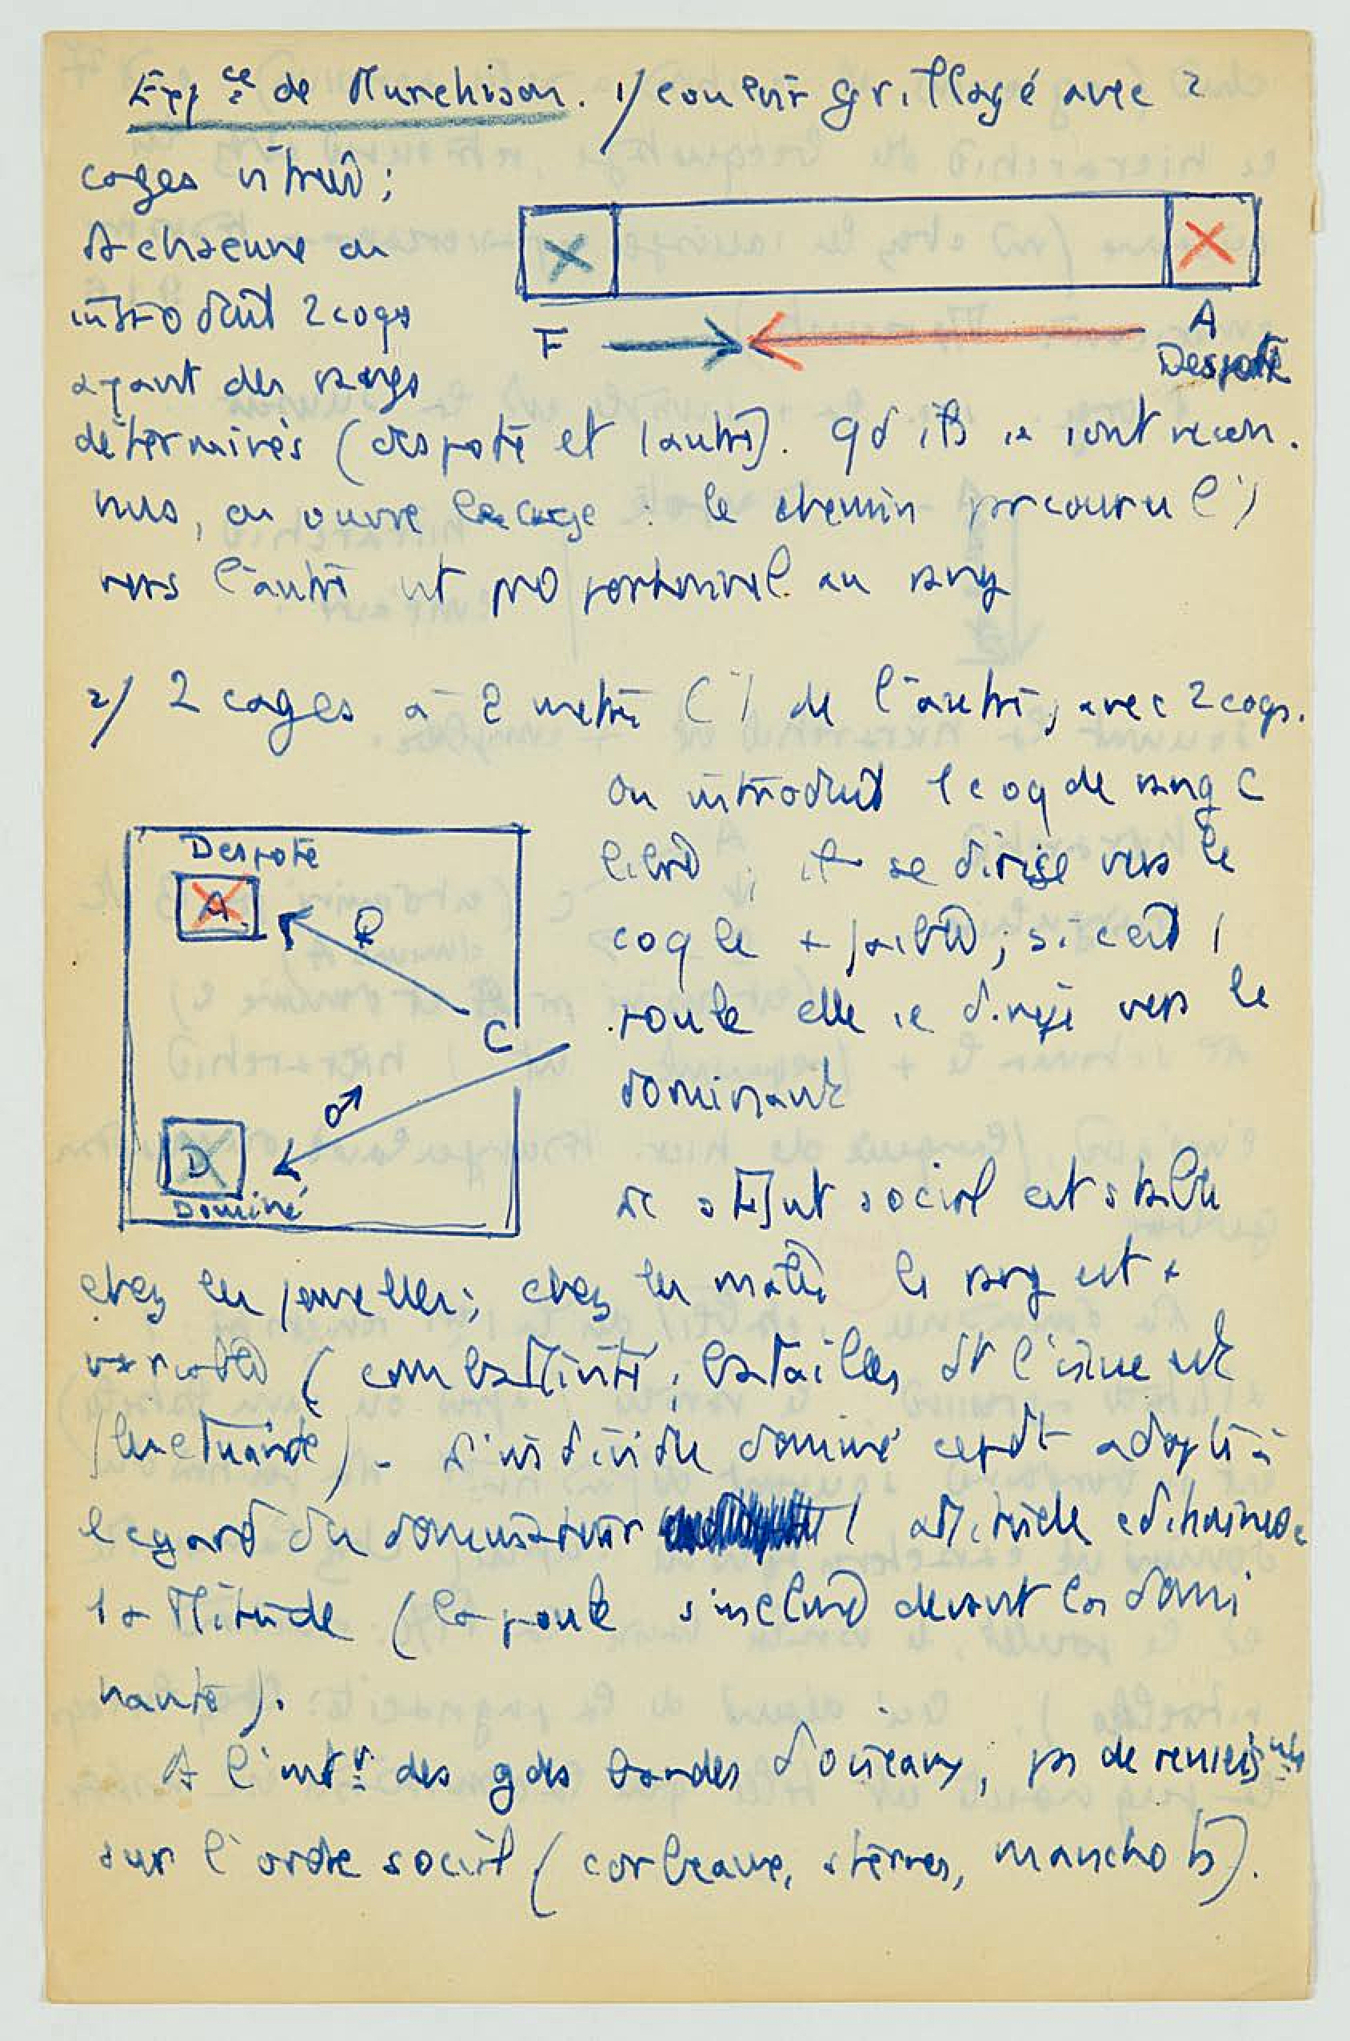 Expce de Murchison. 1/ couloir grillagé avec 2
cages vitrées;
A chacune on
introduit 2 coqs
ayant des rangs
déterminés (despote et 1 autre). qd ils se sont recon-
nus, on ouvre la cage : le chemin parcouru l'1
vers l'autre est proportionnel au rang
F
A
Despote
2/ 2 cages à 2 mètres l'1 de l'autre, avec 2 coqs.
On introduit 1 coq de rang C
libre ; il se dirige vers le
coq le + faible ; si c'est 1
poule elle se dirige vers le
dominant
Despote
A
♀
C
♂
D
Dominé
Le statut social est stable
chez les femelles; chez les mâles le rang est +
variable (combattivité, batailles dt l'issue est
fluctuante) - L'individu dominé cepdt adopte à
l'égard du dominateur 1 attitude
1 attitude (la poule s'incline devant les domi
nants).
A l'intr des gdes bandes d'oiseaux, ps de renseignts
sur l'ordre social (corbeaux, sternes, manchots).